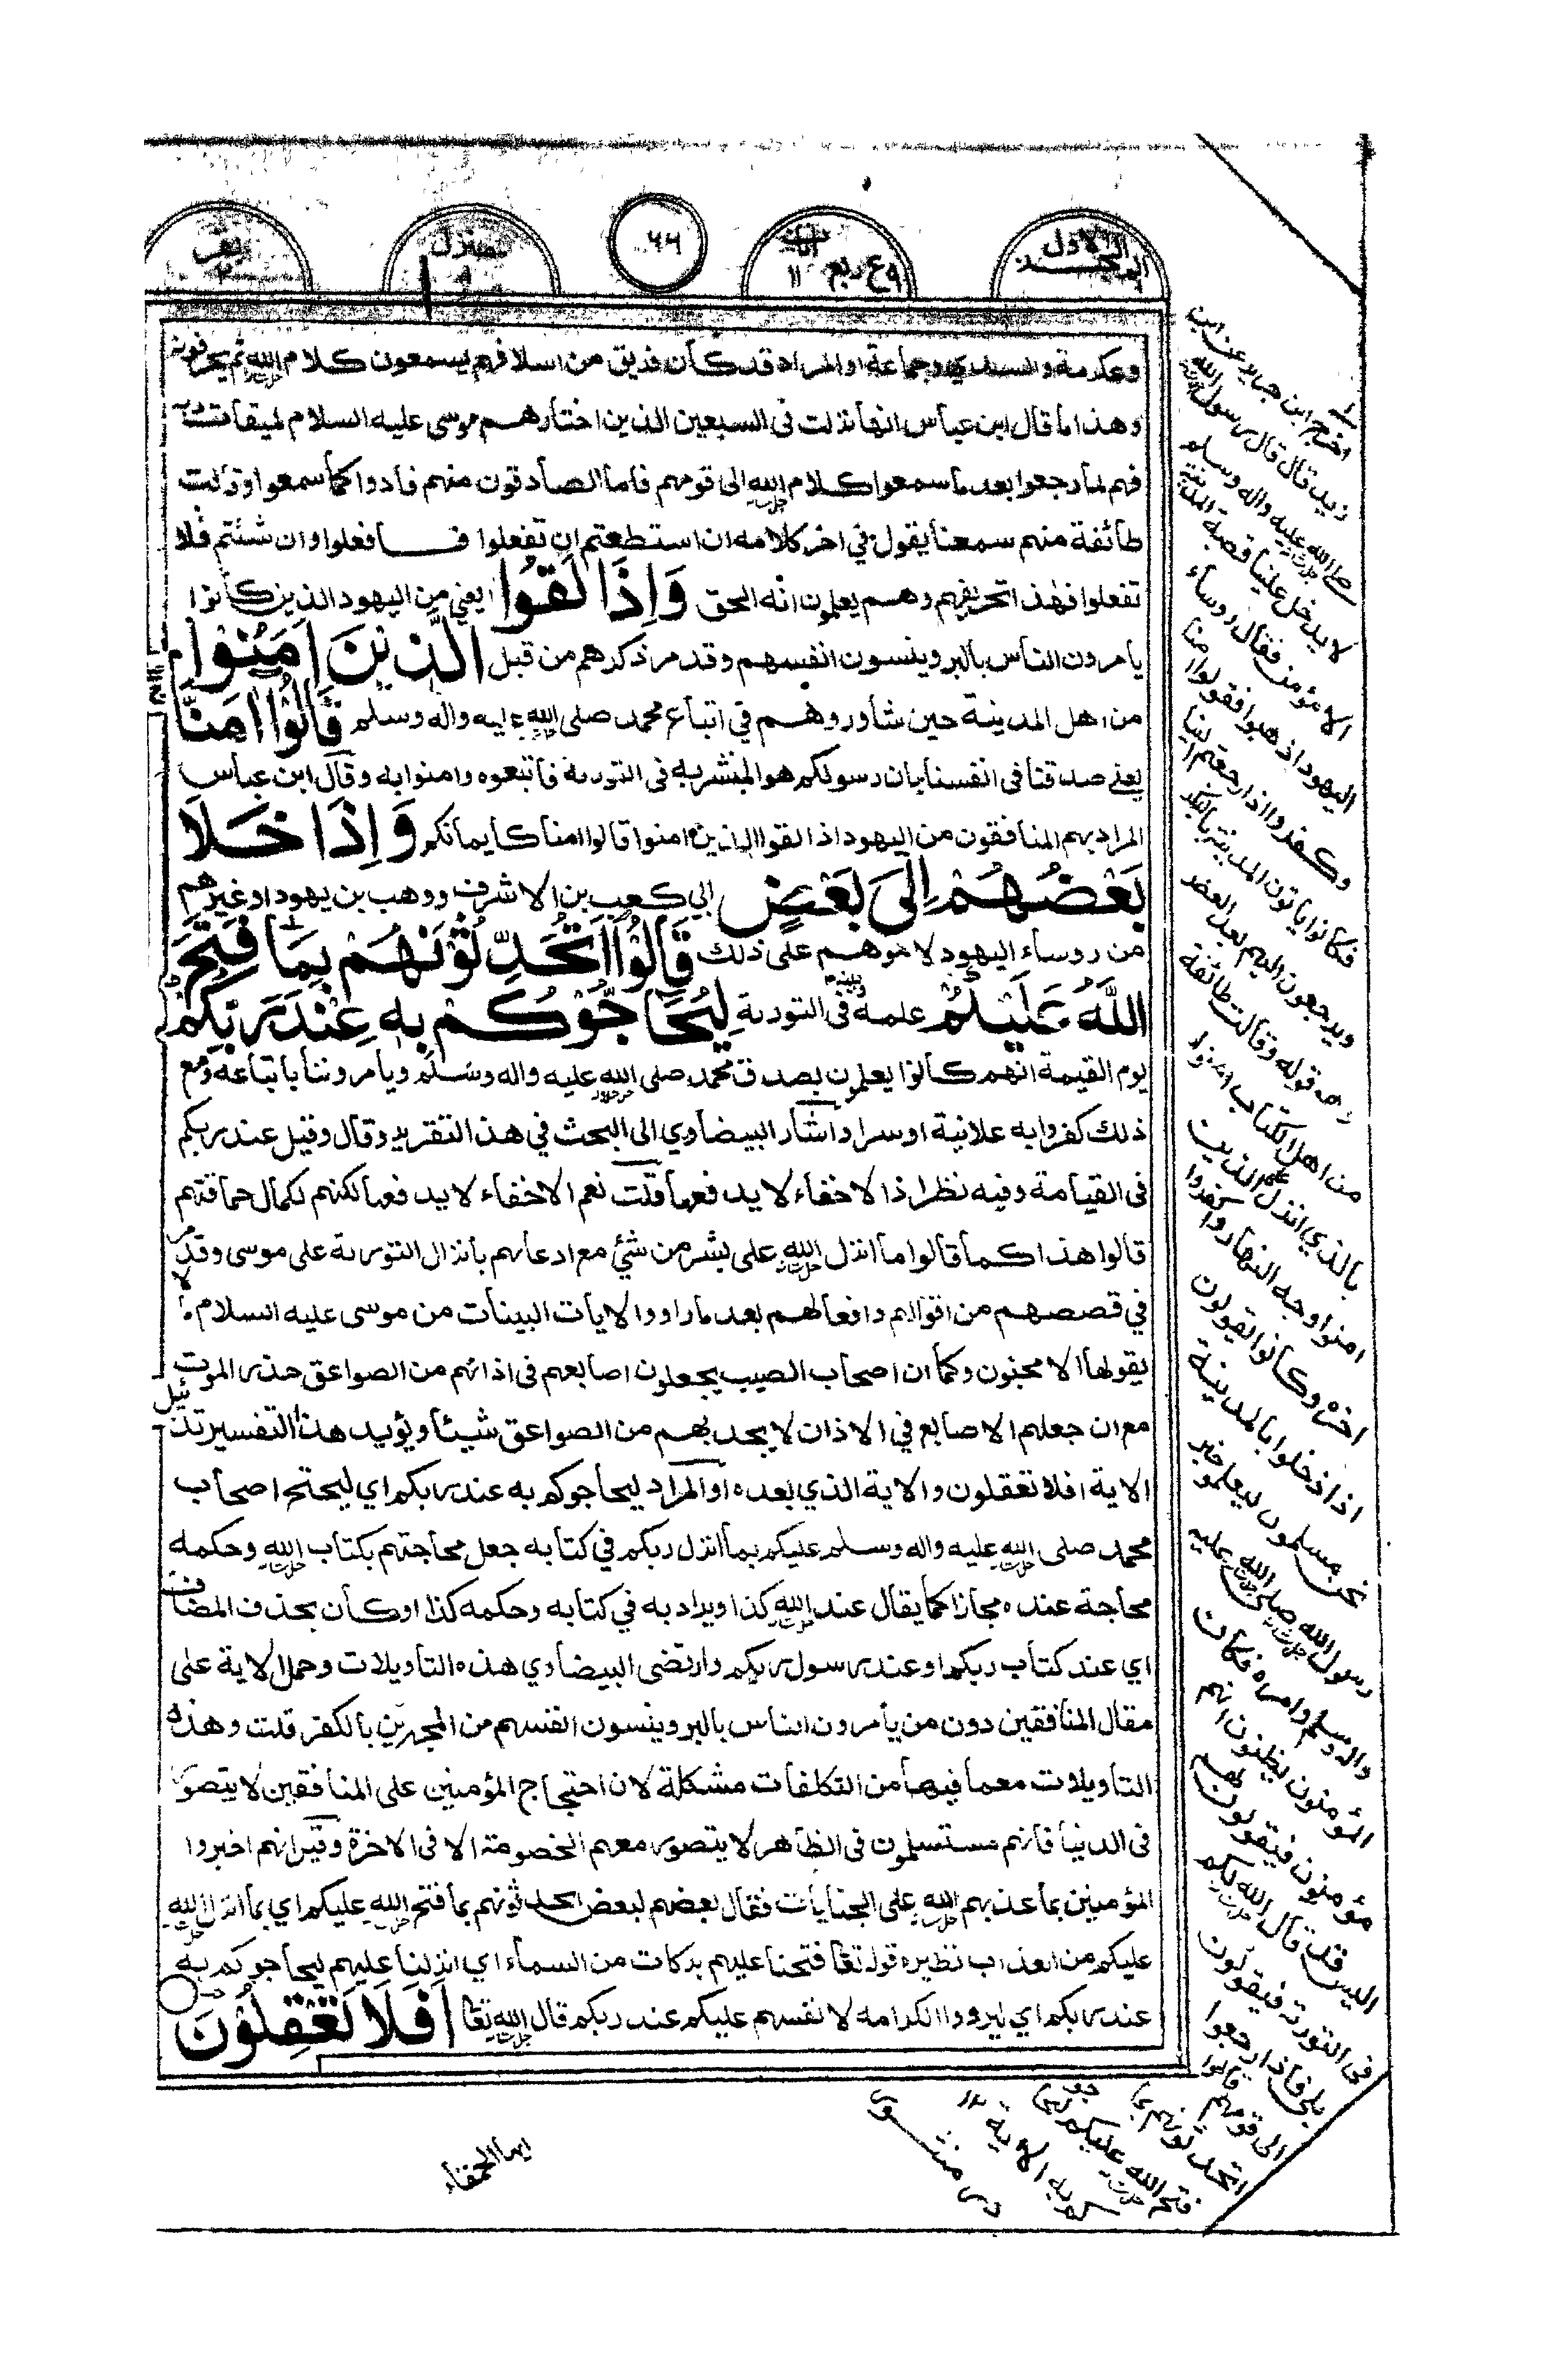 ٦٦
ع ربع
١١
وعكرمة والسدي وجماعة او المراد قد كان فريق من اسلافهم يسمعون كلام الله ثم يحرفونه
وهذا ما قال ابن عباس انها نزلت فى السبعين الذين اختارهم موسى عليه السلام لميقات
فهم لما رجعوا بعد ما سمعوا كلام الله الى قومهم فاما الصادقون منهم فادوا كما سمعوا وقالت
طائفة منهم سمعنا يقول في اخر كلامه ان استطعتم ان تفعلوا فافعلوا وان شئتم فلا
تفعلوا فهذا تحريفهم وهم يعلمون انه الحق وَاِذَا لَقُوا يعني من اليهود الذين كانوا
يامرون الناس بالبر وينسون انفسهم وقد مر ذكرهم من قبل الَّذِيْنَ اٰمَنُوْا
من اهل المدينة حين شاوروهم في اتباع محمد صلى الله عليه واله وسلم قَالُوْا اٰمَنَّا
يعني صدقنا في انفسنا بان رسولكم هو المبشر به فى التورىة فاتبعوه وامنوا به وقال ابن عباس
المراد بهم المنافقون من اليهود اذا لقوا الذين امنوا قالوا امنا كايمانكم وَاِذَا خَلَا
بَعْضُهُمْ اِلٰى بَعْضٍ الي كعب بن الاشرف ووهب بن يهودا وغيرهم
من روساء اليهود لاموهم على ذلك قَالُوْا اَتُحَدِّثُوْنَهُمْ بِمَا فَتَحَ
اللّٰهُ عَلَيْكُمْ علمه وبينه فى التورىة لِيُحَاجُّوْكُمْ بِهٖ عِنْدَ رَبِّكُمْ
يوم القيمة انهم كانوا يعلمون بصدق محمد صلى الله عليه واله وسلم ويامروننا باتباعه ومع
ذلك كفروا به علانية او سرا واشار البيضاوي الى البحث في هذا التقرير وقال وقيل عند ربكم
فى القيامة وفيه نظر اذ الاخفاء لا يدفعها قلت نعم الاخفاء لا يدفعها لكنهم لكمال حماقتهم
قالوا هذا كما قالوا ما انزل الله على بشر من شئ مع ادعائهم بانزال التورىة على موسى وقد مر
في قصصهم من اقوالهم وافعالهم بعد ما راوا الايات البينات من موسى عليه السلام ما لا
يقولها الا مجنون وكما ان اصحاب الصيب يجعلون اصابعهم فى اذانهم من الصواعق حذر الموت
مع ان جعلهم الاصابع في الاذان لا يجديهم من الصواعق شيئا ويؤيد هذا التفسير تذئيل
الاية افلا تعقلون والاية الذي بعده او المراد ليحاجوكم به عند ربكم اي ليحتج اصحاب
محمد صلى الله عليه واله وسلم عليكم بما انزل ربكم في كتابه جعل محاجتهم بكتاب الله وحكمه
محاجة عنده مجازا كما يقال عند الله كذا ويراد به في كتابه وحكمه كذا او كان بحذف المضاف
اي عند كتاب ربكم او عند رسول ربكم وارتضى البيضاوي هذه التاويلات وحمل الاية على
مقال المنافقين دون من يأمرون الناس بالبر وينسون انفسهم من المجهرين بالكفر قلت وهذه
التاويلات معما فيها من التكلفات مشكلة لان احتجاج المؤمنين على المنافقين لا يتصور
فى الدنيا فانهم مستسلمون فى الظاهر لا يتصور معهم الخصومة الا فى الاخرة وقيل انهم اخبروا
المؤمنين بما عذبهم الله على الجنايات فقال بعضهم لبعض اتحدثونهم بما فتح الله عليكم اي بما انزل الله
عليكم من العذاب نظيره قوله تعا فتحنا عليهم بركات من السماء اي انزلنا عليهم ليحاجوكم به
عند ربكم اي ليروا الكرامة لانفسهم عليكم عند ربكم قال الله تعا اَفَلَا تَعْقِلُوْنَ
اخرج ابن جرير عن ابن
زيد قال قال رسول الله
صلى الله عليه واله وسلم
لا يدخل علينا قصبة المدينة
الا مؤمن فقال روساء
اليهود اذهبوا فقولوا امنا
وكفروا اذا رجعتم الينا
فكانوا ياتون المدينة بالبكر
ويرجعون اليهم بعد العصر
وهو قوله وقالت طائفة
من اهل الكتاب امنوا
بالذي انزل على الذين
امنوا وجه النهار واكفروا
اخره وكانوا يقولون
اذا دخلوا بالمدينة
نحن مسلمون ليعلموا خبر
رسول الله صلى الله عليه
واله وسلم وامره فكان
المؤمنون يظنون انهم
مؤمنون فيقولون لهم
اليس قد قال الله لكم
في التورىة فيقولون
بلى فاذا رجعوا
الى قومهم قالوا
اتحدثونهم بما
فتح الله عليكم ليحاجوكم
به الاية
در منثور
ايها الحمقاء